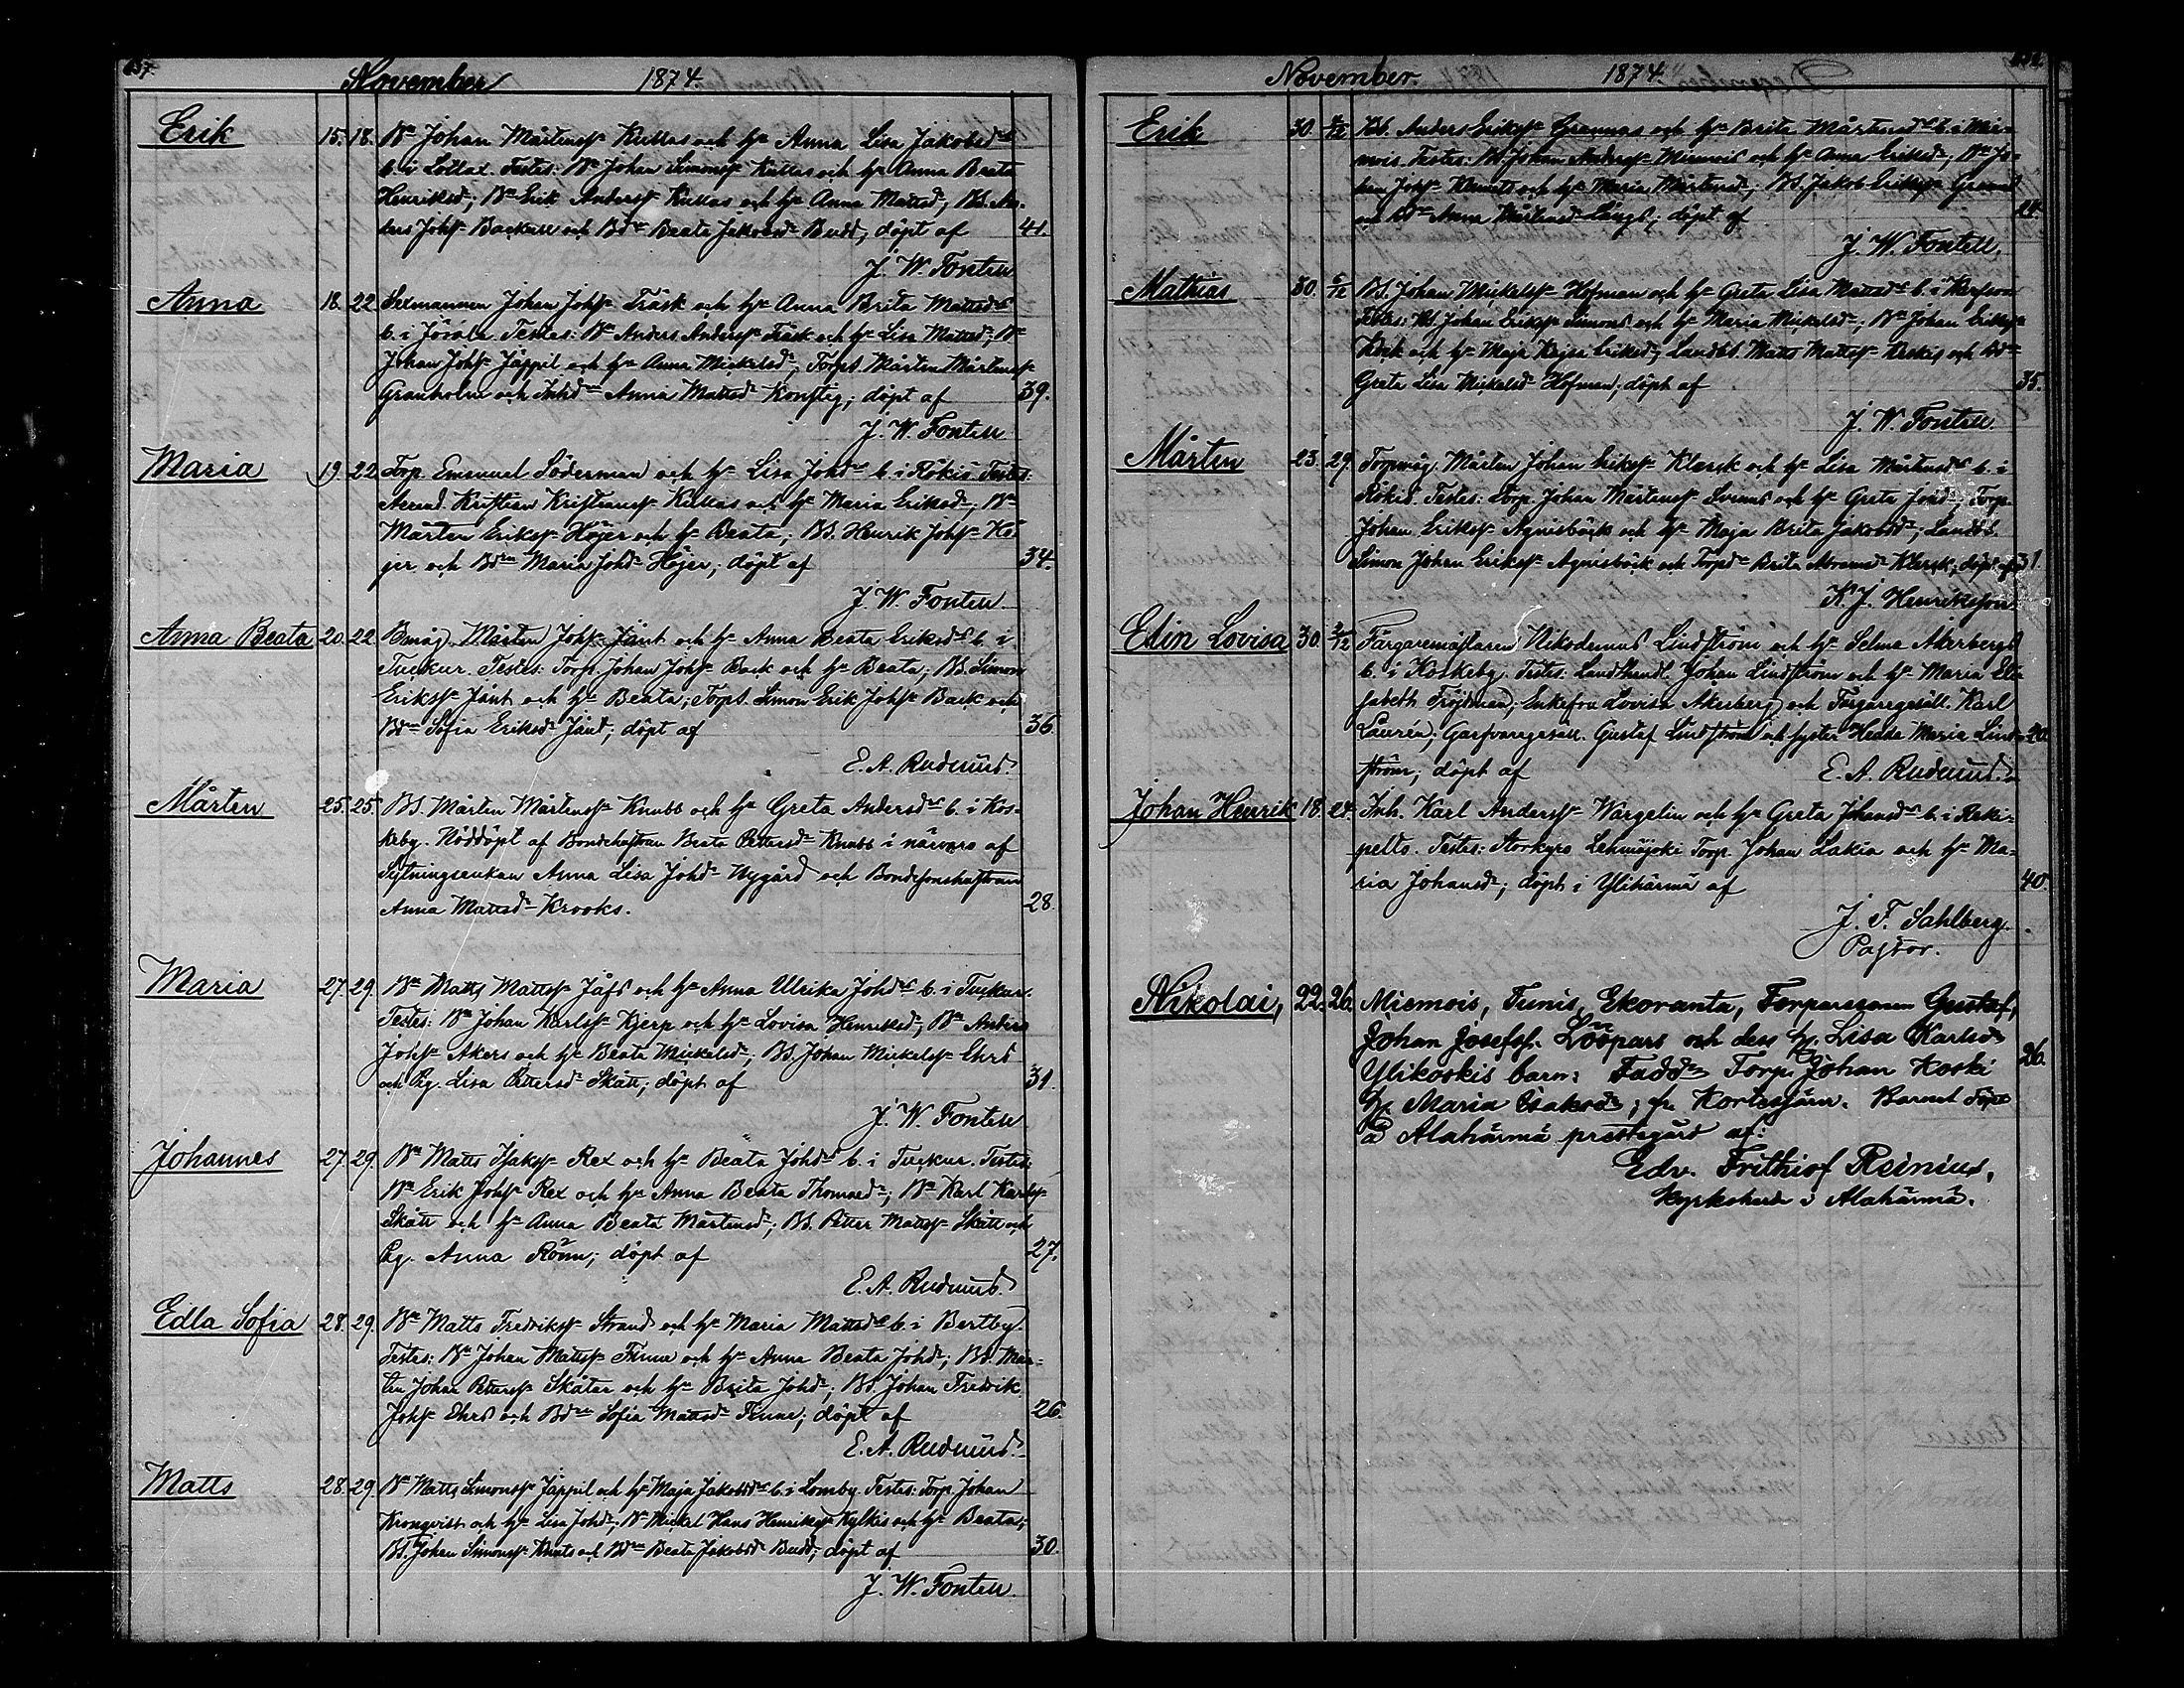 November 1874.
Erik 15. 18. Bn Johan Mårtenss. Kullas och h. Anna Lisa Jakobsdr
b. i Lottax. Testes: Bn Johan Simonss. Kullas och h. Anna Beata
Henriksd.; Bn Erik Anderss. Kullas och h. Anna Mattsd.; BS. An-
ders Johss. Backull och Bdr Beata Jakobsd. Budd; döpt af 41.
J. W. Fontell
Anna 18. 22 Sexmannen Johan Johss. Träsk och h. Anna Brita Mattsdr
b. i Jörala. Testes: Bn Anders Anderss. Träsk och h. Lisa Mattsd.; Bn
Johan Johss. Jäppil och h. Anna Mickelsd.; Torps. Mårten Mårtenss.
Granholm och Inhd. Anna Mattsd. Konstig; döpt af 39.
J. W. Fontell
Maria 19. 22 Torp. Emanuel Söderman och h. Lisa Johdr b. i Rökiö. Testes:
Kristian Kristianss. Kullas och h. Maria Eriksd.; Bn
Mårten Erikss. Höjer och h. Beata; BS. Henrik Johss. Hö-
jer och Bdr Maria Johd. Höjer; döpt af 34.
J. W. Fontell
Anna Beata 20. 22 Bmåg Mårten Johss. Jånt och h. Anna Beata Eriksdr b. i
Tuckur. Testes: Torp. Johan Johss. Back och h. Beata; BS. Simon
Erikss. Jånt och h. Beata; Torps. Simon Erik Johss. Back och
Bdr Sofia Eriksd. Jånt; döpt af 36.
E. A. Rudnäs.
Mårten 25. 25. BS. Mårten Mårtenss. Knubb och h. Greta Andersdr b. i Kos-
keby. Nöddöpt af Bondehustrun Beata Pettersd. Knubb i närvaro af
Sytningsenkan Anna Lisa Johd. Nygård och Bondesonshustrun
Anna Mattsd. Krooks. 28.
Maria 27. 29. Bn Matts Mattss. Jåfs och h. Anna Ulrika Johdr b. i Tuckur.
Testes: Bn Johan Karlss. Kjerp och h. Lovisa Henriksd.; Bn Anders
Johss. Akers och h. Beata Mickelsd.; BS. Johan Mickelss. Ehrs
och Pig. Lisa Pettersd. Skått; döpt af 31.
J. W. Fontell
Johannes 27. 29. Bn Matts Isakss. Rex och h. Beata Johdr b. i Tuckur. Testes:
Bn Erik Johss. Rex och h. Anna Beata Thomasd.; Bn Karl Karlss.
Skått och h. Anna Beata Mårtensd.; BS. Petter Mattss. Skått och
Pig. Anna Rönn; döpt af 27.
Edla Sofia 28. 29. Bn Matts Fredrikss. Strand och h. Maria Mattsdr b. i Bertby.
Testes: Bn Johan Mattss. Finne och h. Anna Beata Johd.; BS. Mår-
ten Johan Petterss. Skåtar och h. Brita Johd.; BS. Johan Fredrik
Johss. Ehrs och Bdr Sofia Mattsd. Finne; döpt af 26.
Matts 28. 29. Bn Matts Simonss. Jäppil och h. Maja Jakobsdr b. i Lomby. Testes: Torp. Johan
Kronqvist och h. Lisa Johd.; Bn Mickel Hans Henrikss. Kylkis och h. Beata;
BS. Johan Simonss. Knuts och Bdr Beata Jakobsd. Budd; döpt af 30.
J. W. Fontell
November. 1874.
Erik 30. 6/12 Bd. Anders Erikss. Grannas och h. Brita Mårtensdr b. i Mie-
mois. Testes: Bd. Johan Anderss. Miemois och h. Anna Eriksd.; Bn Jo-
han Johss. Klemets och h. Maria Mårtensd.; BS. Jakob Erikss.
och Bdr Anna Mårtensd. Längs; döpt af 24.
J. W. Fontell.
Mathias 30. 6/12 BS. Johan Mickelss. Hofman och h. Greta Lisa Mattsdr b. i
Testes: Bd. Johan Erikss. Simons och h. Maria Mickelsd.; Bn Johan Erikss.
Kock och h. Maja Kajsa Eriksd.; Landbs. Matts Mattss. Keskis och Bdr
Greta Lisa Mickelsd. Hofman; döpt af 35.
J. W. Fontell
Mårten 23. 29. Torpmåg Mårten Johan Erikss. Klarck och h. Lisa Mårtensdr b. i
Rökiö. Testes: Torp. Johan Mårtenss. Svenns och h. Greta Johd.; Torp.
Johan Erikss. Agnisbäck och h. Maja Brita Jakobsd.; Landbs.
Simon Johan Erikss. Agnisbäck och Torpd. Brita Abramsd. Klarck; döpt af 31.
K. J. Henriksson
Elin Lovisa 30. Färgaremästaren Nikodemus Lindström och h. Selma Åkerberg
b. i Koskeby. Testes: Landthandl. Johan Lindström och h. Maria Eli-
sabeth Fröjdman; Enkefru Lovisa Åkerberg och Färgaregesäll. Karl
Laurén; Garfvaregesäll. Gustaf Lindström och syster Hedda Maria Lind- 20.
ström; döpt af
Johan Henrik 18. 24. Inh. Karl Anderss. Wargelin och h. Greta Johansdr b. i Reki-
pelto. Testes: Storkyro Lehmäjoki Torp. Johan Lakia och h. Ma-
ria Johansd.; döpt i Ylihärmä af 40.
J. F. Sahlberg.
Pastor.
Nikolai, 22. 26. Miemois, Tunis, Ekoranta, Torparsonen Gustaf
Johan Josefss. Lööpars och dess h. Lisa Karlsdr
Ylikoskis barn: Fadd. Torp. Johan Koski 26.
h. Maria Isaksdr; fr. Kortesjärvi. Barnet döpt
å Alahärmä prestegård af:
Edv. Frithiof Reinius,
Kyrkoherde i Alahärmä.